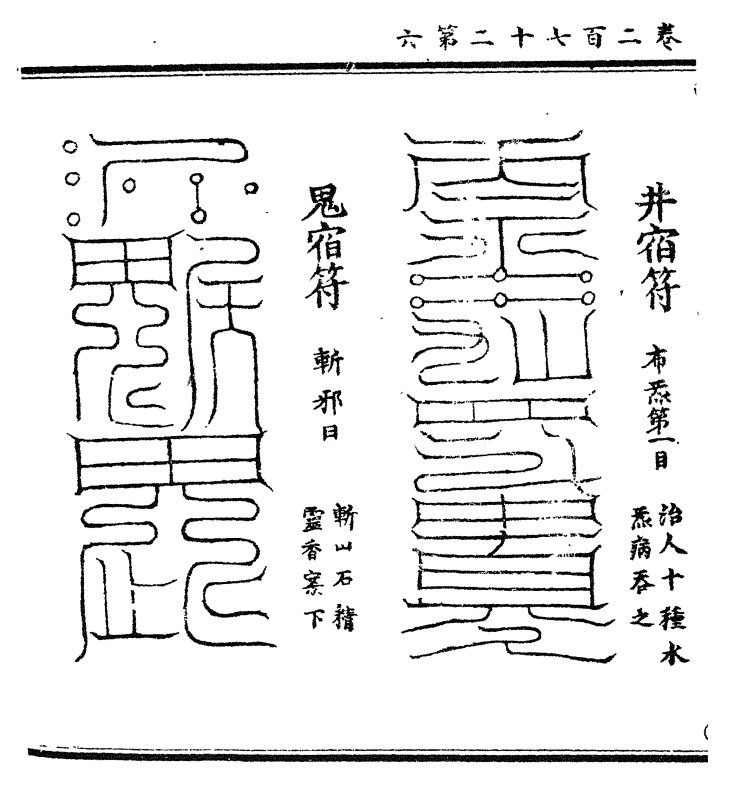 卷二百七十二第六
井宿符
布炁第一日
治人十種水
炁病吞之
鬼宿符
斬邪日
斬山石精
靈香案下